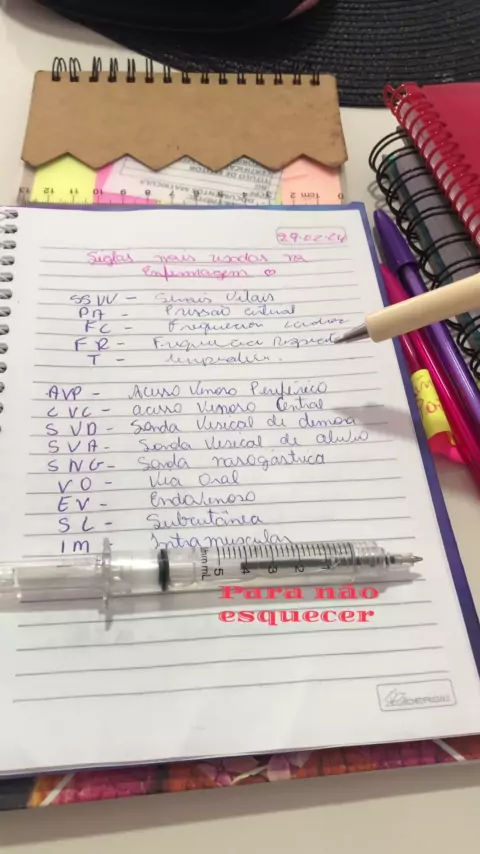 29.02.24
Siglas mais usadas na
Enfermagem
SSVV - Sinais Vitais
PA - Pressão arterial
FC - Frequencia cardiac
FR - Frequencia Respirato
T - temperatura.
AVP - Acesso Venoso Periférico
CVC - acesso Venoso Central
SVD - Sonda Vesical de demora
SVA - Sonda Vesical de alivio
SNG - Sonda nasogástrica
VO - Via Oral
EV - Endovenoso
SC - Subcutânea
IM - Intramuscular
5 4 3 2 1
Para não
esquecer